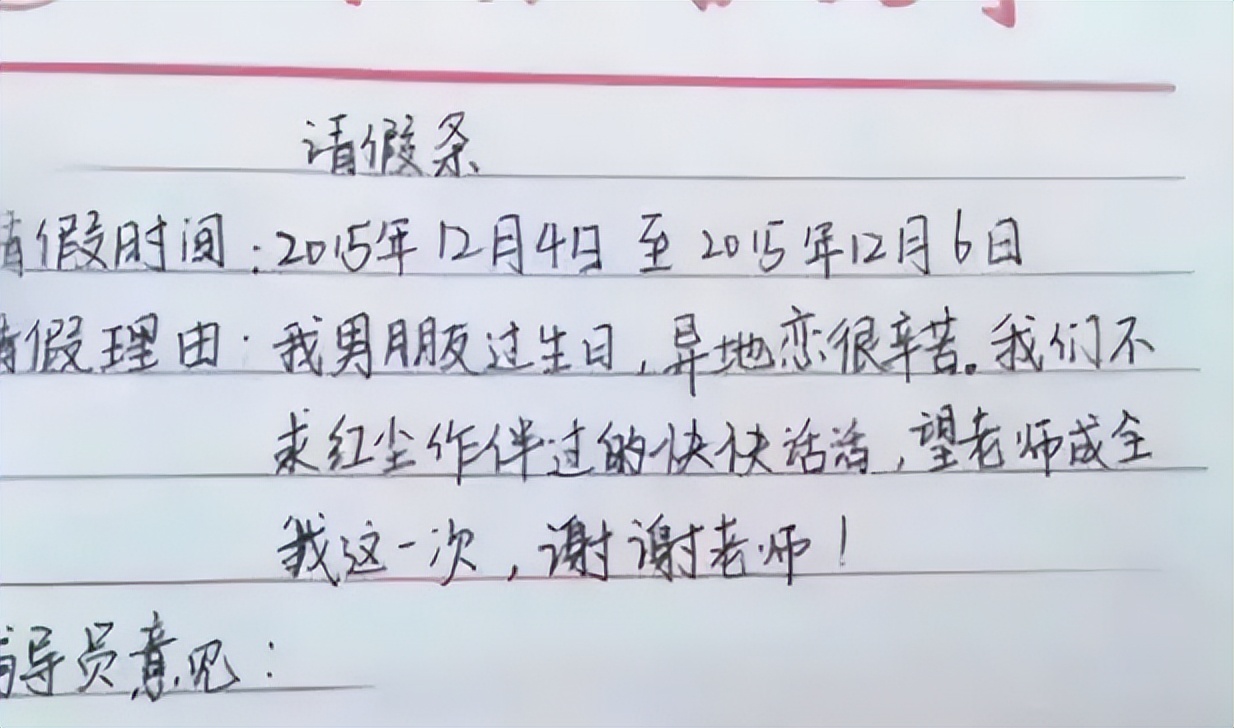 请假条
请假时间：2015年12月4日 至 2015年12月6日
请假理由：我男朋友过生日，异地恋很辛苦。我们不
求红尘作伴过的快快活活，望老师成全
我这一次，谢谢老师！
辅导员意见：